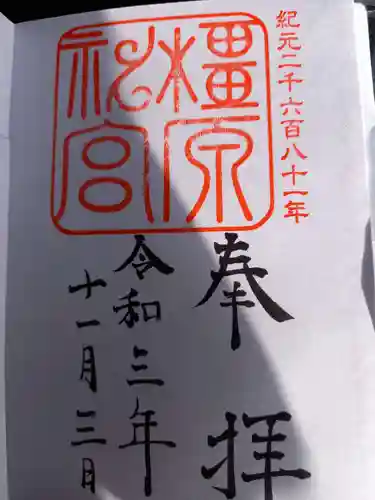 紀元二千六百八十一年
橿原
神宮
奉拝
令和三年
十一月三日